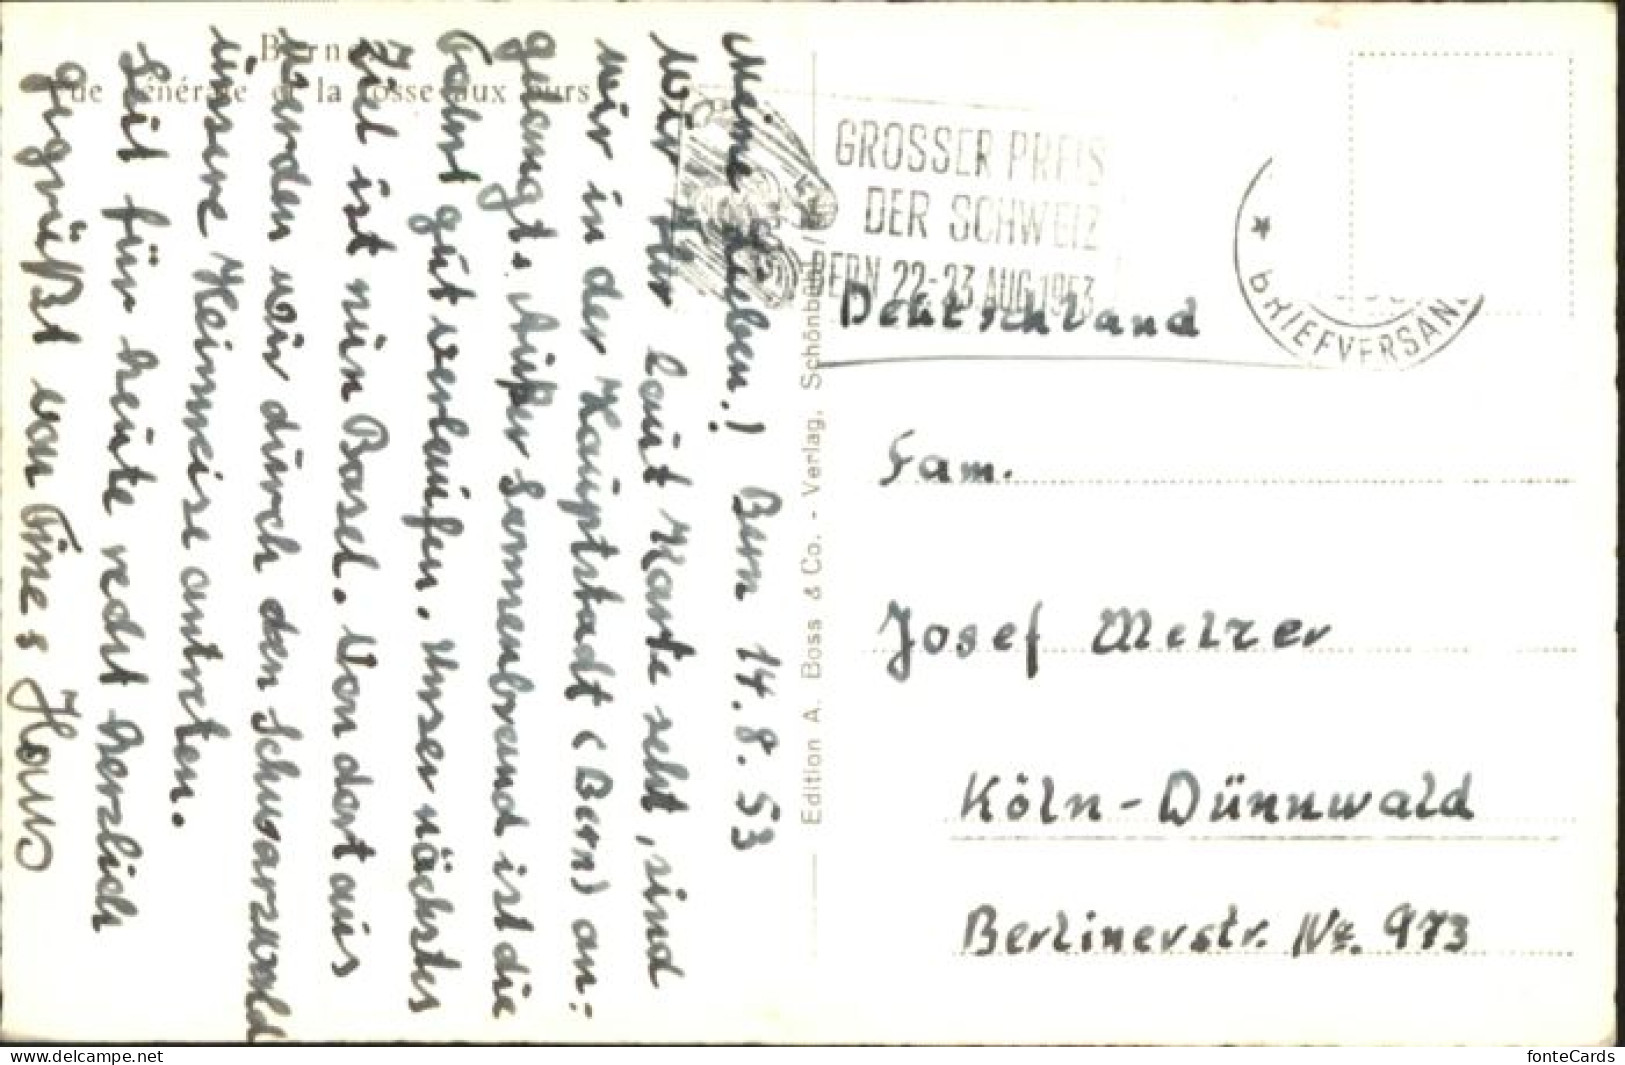 Meine Lieben! Bern 14.8.53
Wie Ihr laut Karte seht, sind
wir in der Hauptstadt (Bern) an-
gelangt. Außer Sonnenbrand ist die
Fahrt gut verlaufen. Unser nächstes
Ziel ist nun Basel. Von dort aus
werden wir durch den Schwarzwald
unsere Heimreise antreten.
Seit für heute recht herzlich
gegrüßt von Fine & Hans
Bern
de la Fosse aux ours
Edition A. Boss & Co. - Verlag, Schönbühl/
GROSSER PREIS
DER SCHWEIZ
BERN 22-23 AUG 1953
* BRIEFVERSAN
Deutschland
Fam.
Josef Melzer
Köln-Dünnwald
Berlinerstr. Nr. 973
fonteCards
save the date with delcampe.net